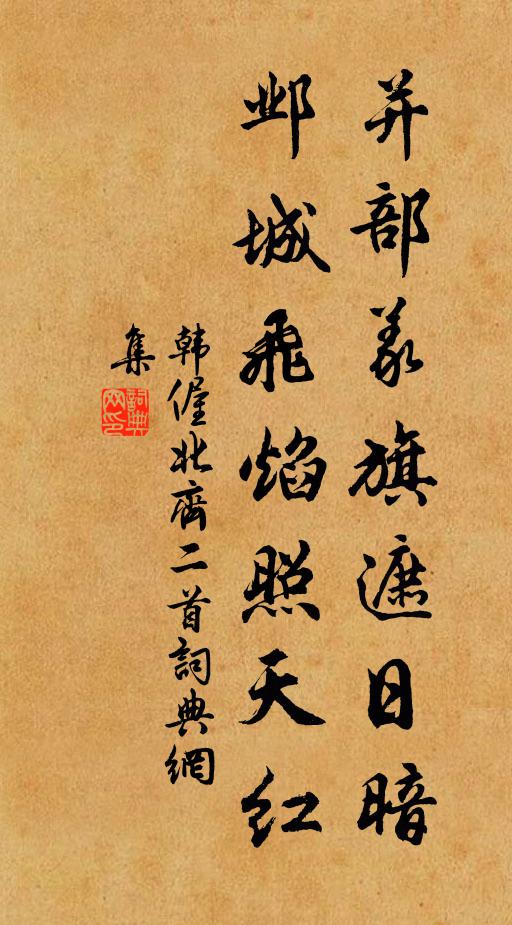 并部义旗遮日暗
邺城飞焰照天红
韩偓北齊二首詞典網
集
詞典
网印